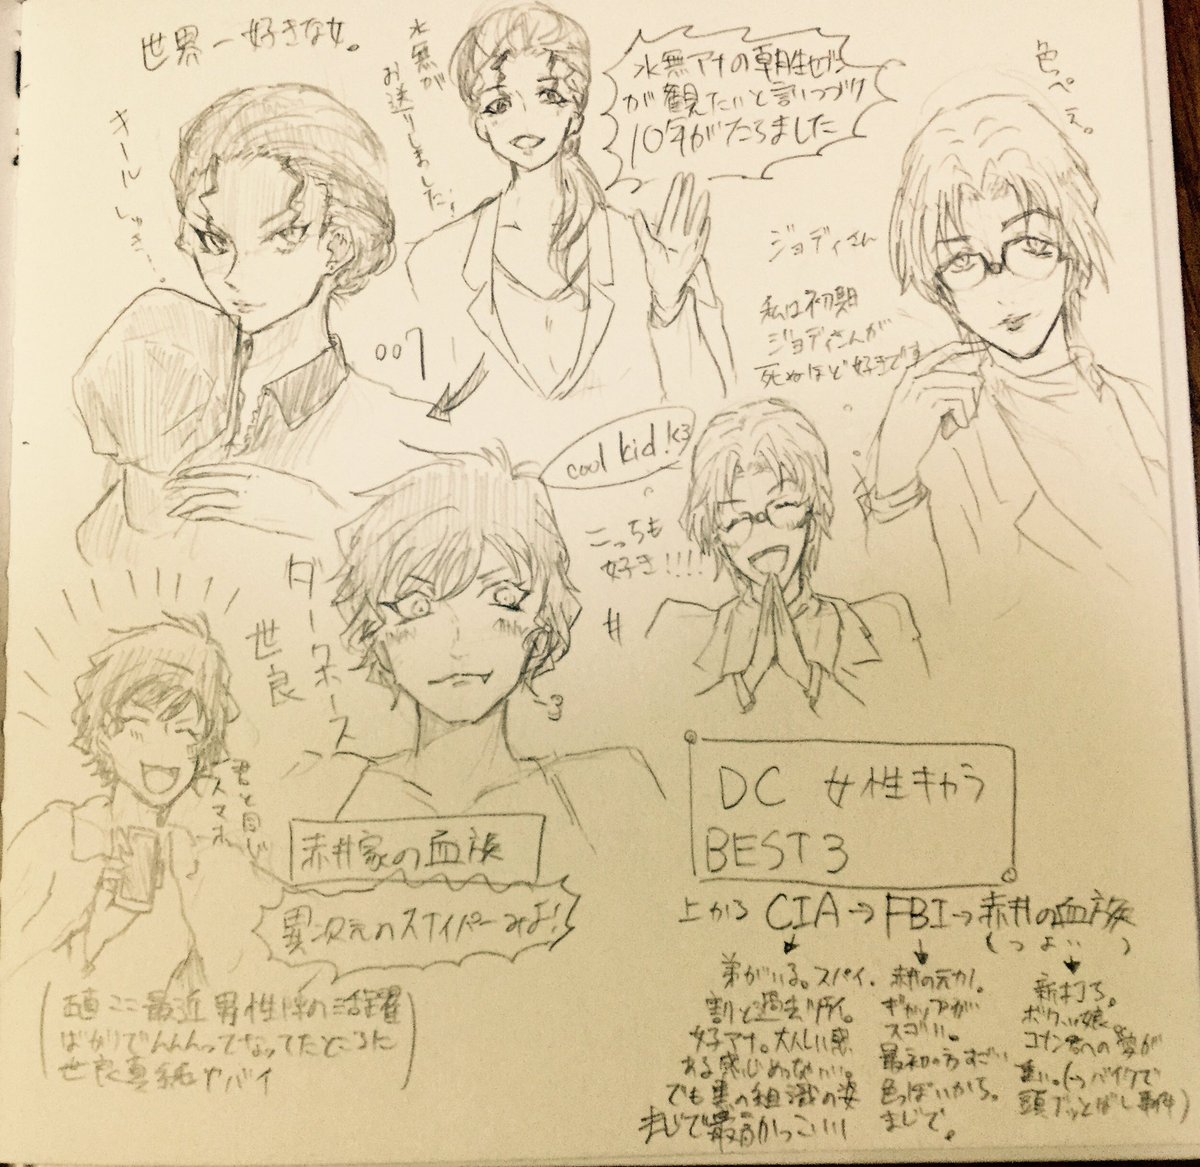 世界一好きな女。
キール
しゅき…
水無が
お送りしました!
水無アナの朝生ゼヒ
が観たいと言いつづけ
10年がたちました
色っぺえ。
ジョディさん
私は初期
ジョディさんが
死ぬほど好きです
007
cool kid!<3
こっちも
好き!!!!
ダークホース
世良
君と同じ
スマホ
赤井家の血族
異次元のスナイパーみよ!
DC 女性キャラ
BEST 3
上から CIA→FBI→赤井の血族
(つよい)
弟がいる。スパイ。
割と過去
女子アナ。大人しい感
ある感じめっちゃいい。
でも黒の組織の姿
まじで最高かっこいい
赤井の元カノ。
ギャップが
スゴい。
最初の方すごい
色っぽいから。
まじで。
新打ち。
ボクっ娘。
コナン君への愛が
重い。(→バイクで
頭ブッとばし事件)
ここ最近男性陣の活躍
ばかりでんんんってなってたところに
世良真純ヤバイ